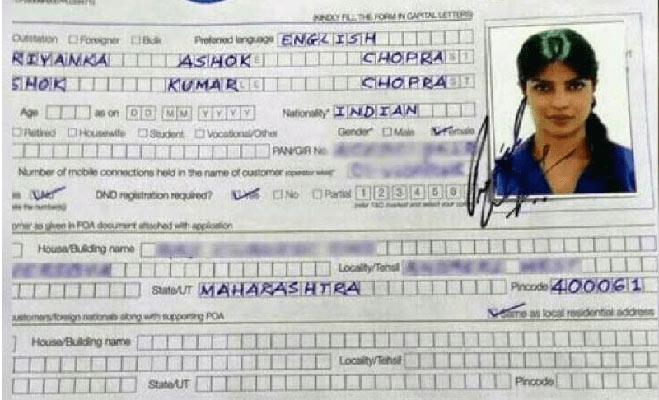 (KINDLY FILL THE FORM IN CAPITAL LETTERS)
Outstation Foreigner Bulk Preferred language ENGLISH
RIYANKA ASHOK CHOPRA
SHOK KUMAR CHOPRA
Age as on D D M M Y Y Y Y Nationality* INDIAN
Retired Housewife Student Vocational/Other Gender* Male Female
PAN/GIR No.
Number of mobile connections held in the name of customer
DND registration required? Yes No Partial 1 2 3 4 5 6
omer as given in POA document attached with application
House/Building name
Locality/Tehsil
State/UT MAHARASHTRA Pincode 400061
customers/foreign nationals along with supporting POA Same as local residential address
House/Building name
Locality/Tehsil
State/UT Pincode